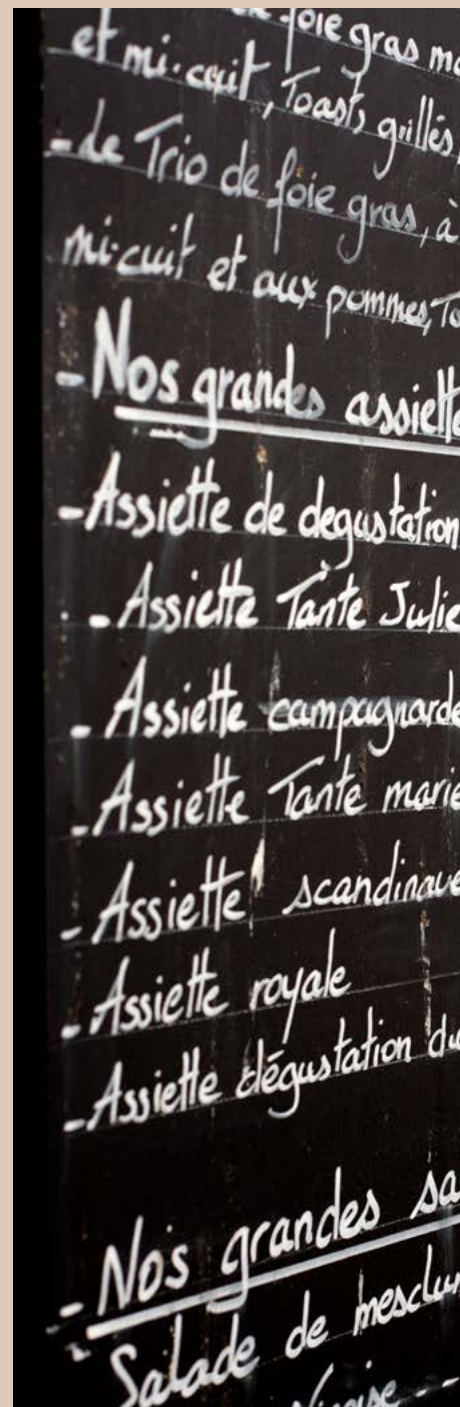 de foie gras
et mi-cuit, Toasts grillés,
- Le Trio de foie gras, à
mi-cuit et aux pommes, To
- Nos grandes assiette
- Assiette de degustation
- Assiette Tante Julie
- Assiette campagnarde
- Assiette Tante marie
- Assiette scandinave
- Assiette royale
- Assiette dégustation du
- Nos grandes sa
Salade de mesclun
Niçoise --